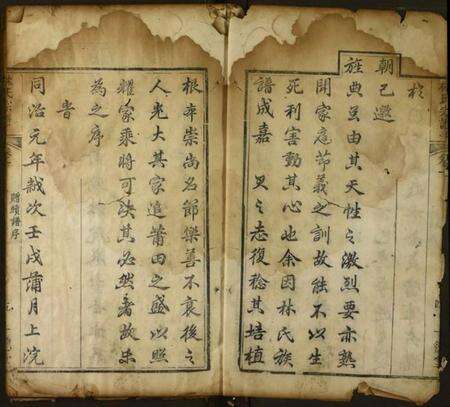 於
朝已邀
旌典並由其天性之激烈要亦熟
聞家庭節義之訓故能不以生
死利害動其心也余因林氏族
譜成嘉之志復稔其培植
根本崇尚名節樂善不衰後之
人光大其家追莆田之盛以照
耀家乘將可決其必然者故
為之序
旹
同治元年歲次壬戌蒲月上浣
贈續譜序